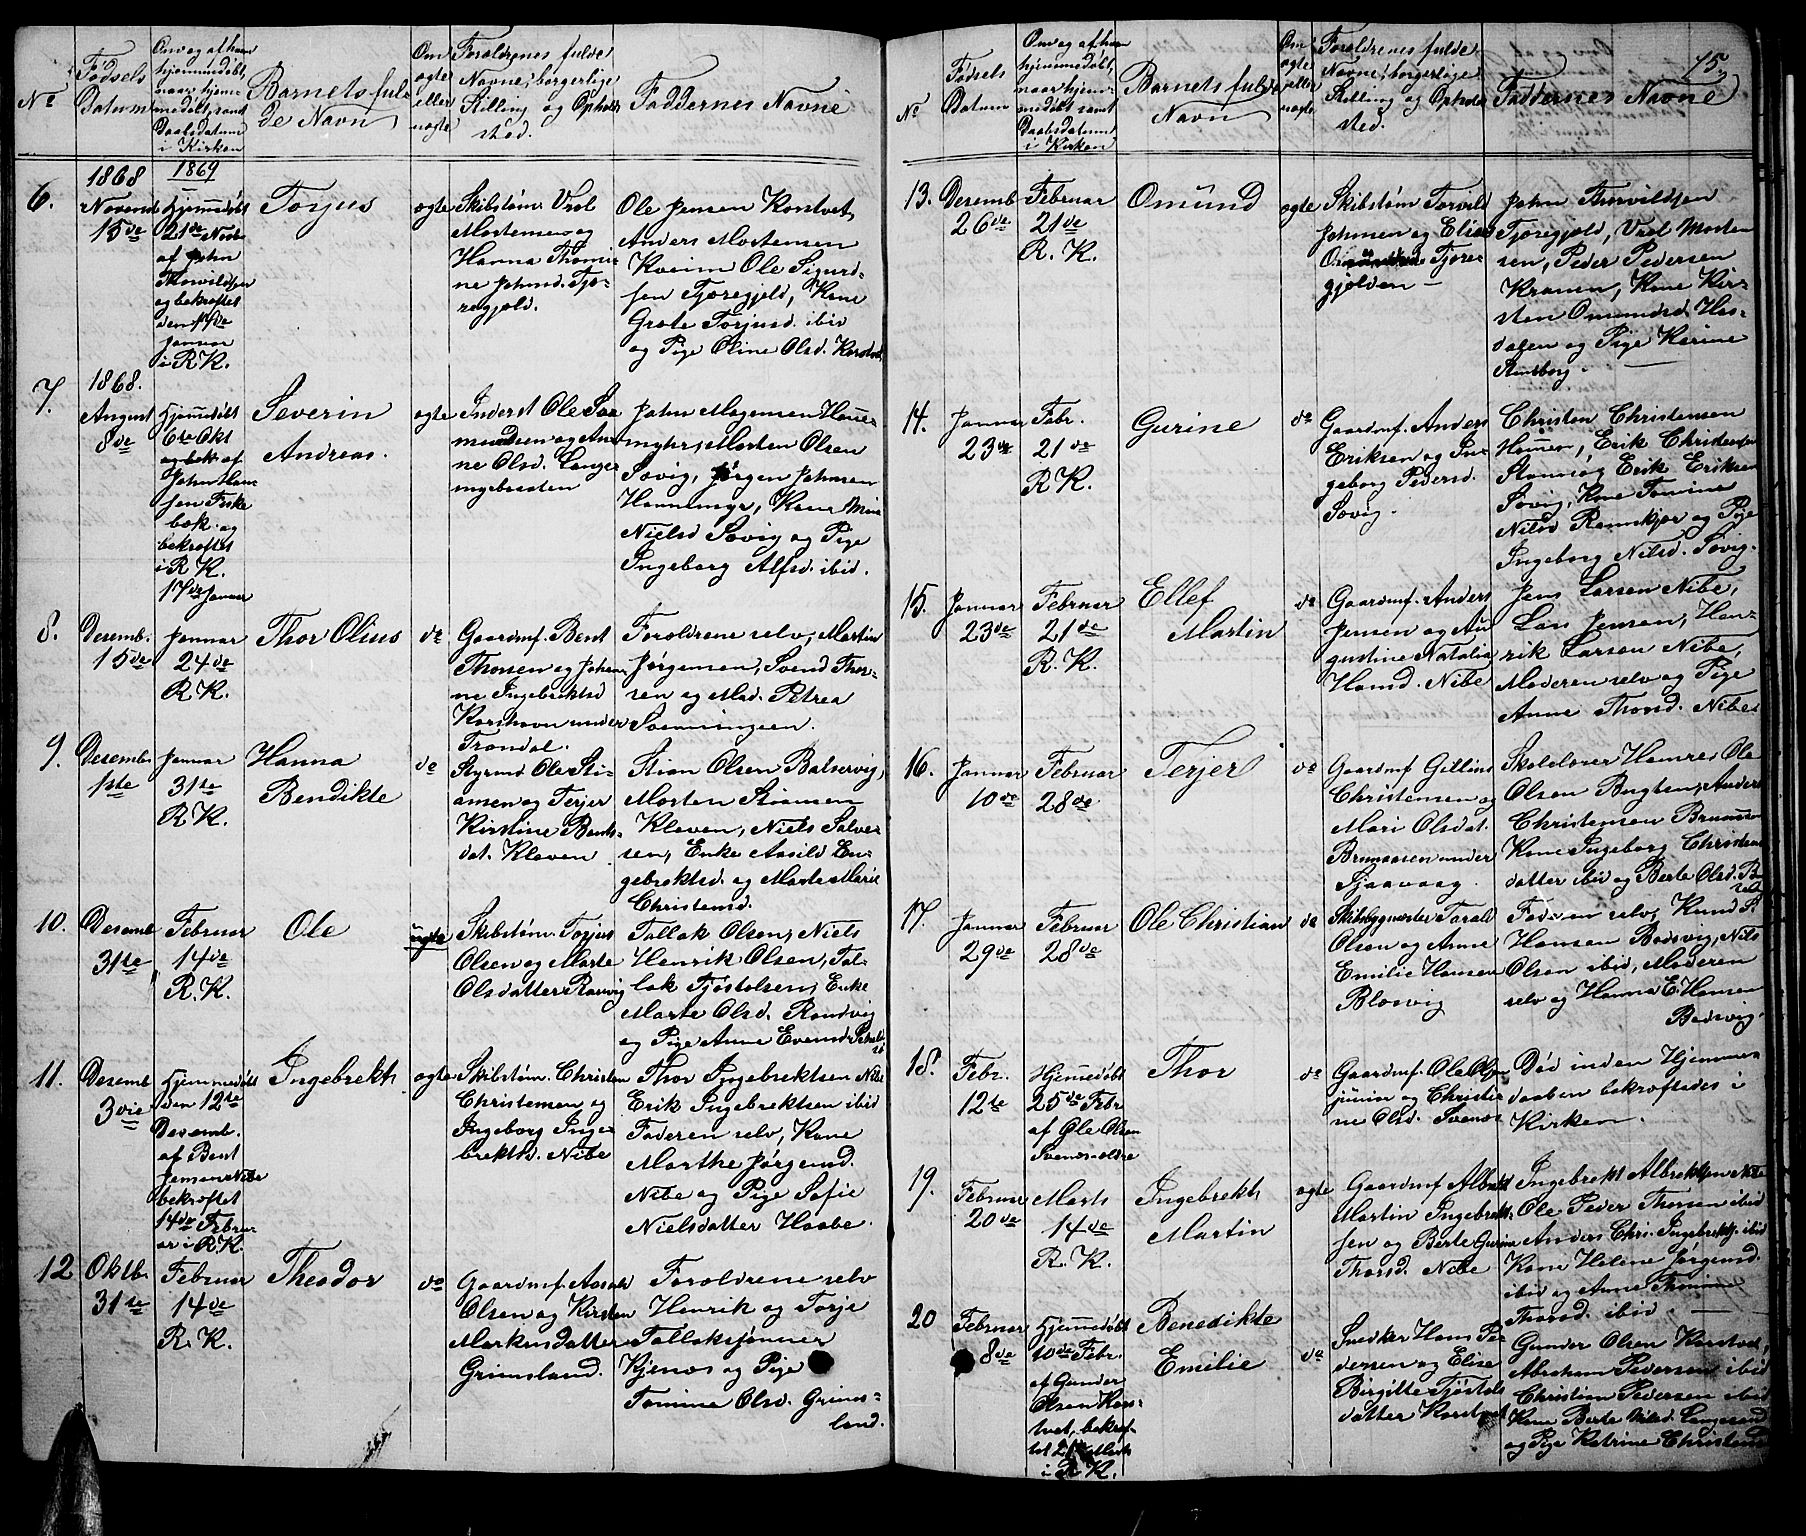 No
Fødsels
Datum
Om og af hvem
hjemmedøbt,
naar hjem-
medøbt, samt
Daabsdatum
i Kirken
Barnets ful-
de Navn
Om
ægte
eller
uægte
Forældrenes fulde
Navne, borgerlige
Stilling og Opholds
sted.
Faddernes Navne
6.
1868
Novemb
15de
1869
Hjemmedøbt
21de Novb
af John
Thorvildsen
og bekræftet
den 17de
Januar
i R.K.
Torjus
ægte
Skibstøm. Vrol
Mortensen og
Hanna Thomi-
ne Johnsd. Tjo-
regjeld.
Ole Jensen Korstvet,
Anders Mortensen
Kveim Ole Sigurd-
sen Tjoregjeld, Kone
Grete Torjusd. ibid
og Pige Oline Olsd. Korstvet
7.
1868.
August
8de
Hjemmedøbt
6te Okt
og bek af
John Han
sen Fiske
bæk. og
bekræftet
i R.K.
17de Januar
Severin
Andreas.
ægte
Inderst Ole Saa
mundsen og An-
ne Olsd. Langer
myrbraaten
John Mogensen Houe-
myhr, Morten Olsen
Søvig, Jørgen Johnsen
Hounmyr, Kone Mine
Nielsd Søvig og Pige
Ingeborg Alfsd. ibid.
8.
Desemb.
15de
Januar
24de
R.K.
Thor Olius
do
Gaardmf. Bent
Thorsen og Johan
ne Ingebrektsd
Korshavn under
Trondal.
Forældrene selv, Martin
Jørgensen, Svend Thor-
sen og Mad. Petrea
Svenningsen.
9.
Desemb.
1ste
Januar
31te
R.K.
Hanna
Bendikte
do
Styrmd Ole Sti-
ansen og Terjer
Kirstine Bents-
dat. Kleven
Stian Olsen Balservig,
Morten Stiansen
Kleven, Niels Salve-
sen, Enke Aasild En-
gebrektsd. og Marte Marie
Christensd.
10.
Desemb
31te
Februar
14de
R.K.
Ole
uægte
Skibstøm. Torjus
Olsen og Marte
Olsdatter Rønvig
Tallak Olsen, Niels
Henrik Olsen, Tal-
lak Tjøstolsen, Enke
Marte Olsd. Rondvig
og Pige Anne Evensd
11.
Desemb
3die
Hjemmedøbt
den 12te
Desemb.
af Bent
Jensen Nibe
bekræftet
14de Febru-
ar i R.K.
Ingebrekth
ægte
Skibstøm. Christen
Christensen og
Ingeborg Inge-
brektsd. Nibe
Thor Ingebrektsen Nibe
Erik Ingebrektsen ibid
Faderen selv, Kone
Marthe Jørgensd.
Nibe og Pige Sofie
Nielsdatter Haabe.
12
Oktb.
31te
Februar
14de
R.K.
Theodor
do
Gaardmf. Aasuld
Olsen og Kirsten
Markusdatter
Grimsland.
Forældrene selv
Henrik og Torje
Tallaksjønner
Kjenos og Pige
Tomine Olsd. Grims-
land.
75.
No
Fødsels
Datum
Om og af hvem
hjemmedøbt,
naar hjem-
medøbt samt
Daabsdatum
i Kirken
Barnets fulde
Navn
Om
ægte
eller
uægte
Forældrenes fulde
Navne, borgerlige
Stilling og Opholds
sted.
Faddernes Navne
13.
Desemb
26de
Februar
21de
R.K.
Omünd
ægte
Skibstøm Torvild
Johnsen og Elise
Tjore-
gjelden
John Thorvildsen
Tjoregjeld, Vrol Morten
sen, Peder Pedersen
Kranen, Kone Kir-
sten Omundsd. Hes-
dalen og Pige Karine
14.
Januar
23de
Febr.
21de
R.K.
Gurine
do
Gaardmf. Anders
Eriksen og In-
geborg Pedersd.
Søvig.
Christen Christensen
Houner, Erik Christensen
Stonne og Erik Eriksen
Søvig, Kone Tomine
Nilsd Ramskjør og Pige
Ingeborg Nilsd. Søvig.
15.
Januar
23de
Februar
21de
R.K.
Ellef
Martin
do
Gaardmf. Anders
Jensen og Au
gustine Natalia
Hansd. Nibe
Jens Larsen Nibe,
Lars Jensen, Hen-
rik Larsen Nibe,
Moderen selv og Pige
Anne Thorsd. Nibe
16.
Januar
10de
Februar
28de
Terjer
do
Gaardmf. Gillius
Christensen og
Mari Olsdat.
Brunaasen under
Sjaavaag.
Skolelærer Hamre, Ole
Olsen Bugten, Anders
Christensen Brunaasen
Kone Ingeborg Christens
datter ibid og Berte Olsd.
17.
Januar
29de
Februar
28de
Ole Christian
do
Skibbygmester Torald
Olsen og Anne
Emilie Hansen
Blosvig
Faderen selv, Knud S.
Hansen Bodsvig, Nils
Olsen ibid, Moderen
selv og Hanna E. Hansen
Bodsvig.
18.
Febr.
12te
Hjemmedøbt
25de Febr
af Ole Olsen
Svenes ældre
Thor
do
Gaardmf. Ole Olsen
junior og Christi-
ne Olsd. Svenes
Død inden Hjemme-
daaben bekræftedes i
Kirken.
19.
Februar
20de
Marts
14de
R.K.
Ingebrekth
Martin
ægte
Gaardmf Albrekt
Martin Ingebrekt-
sen og Berte Gurine
Thorsd. Nibe
Ingebrekt Albrektsen Nibe
Ole Peder Thorsen ibid
Anders Chr. Ingebrektsen ibid
Kone Helene Jørgensd.
ibid og Anne Thomine
Thorsd. ibid
20
Februar
8de
Hjemmedøbt
10de Febr.
af Gunder
Olsen Kors-
tvet, bekræf-
tet 21de Marts
i R.K.
Benedikte
Emilie
do
Snedker Hans Pe-
dersen og Elise
Birgitte Tjøstols
datter Korstvet
Gunder Olsen Korstvet,
Abraham Pedersen ibid
Christian Pedersen ibid
Kone Berte Nilsd. Langesand
og Pige Katrine Christensd.